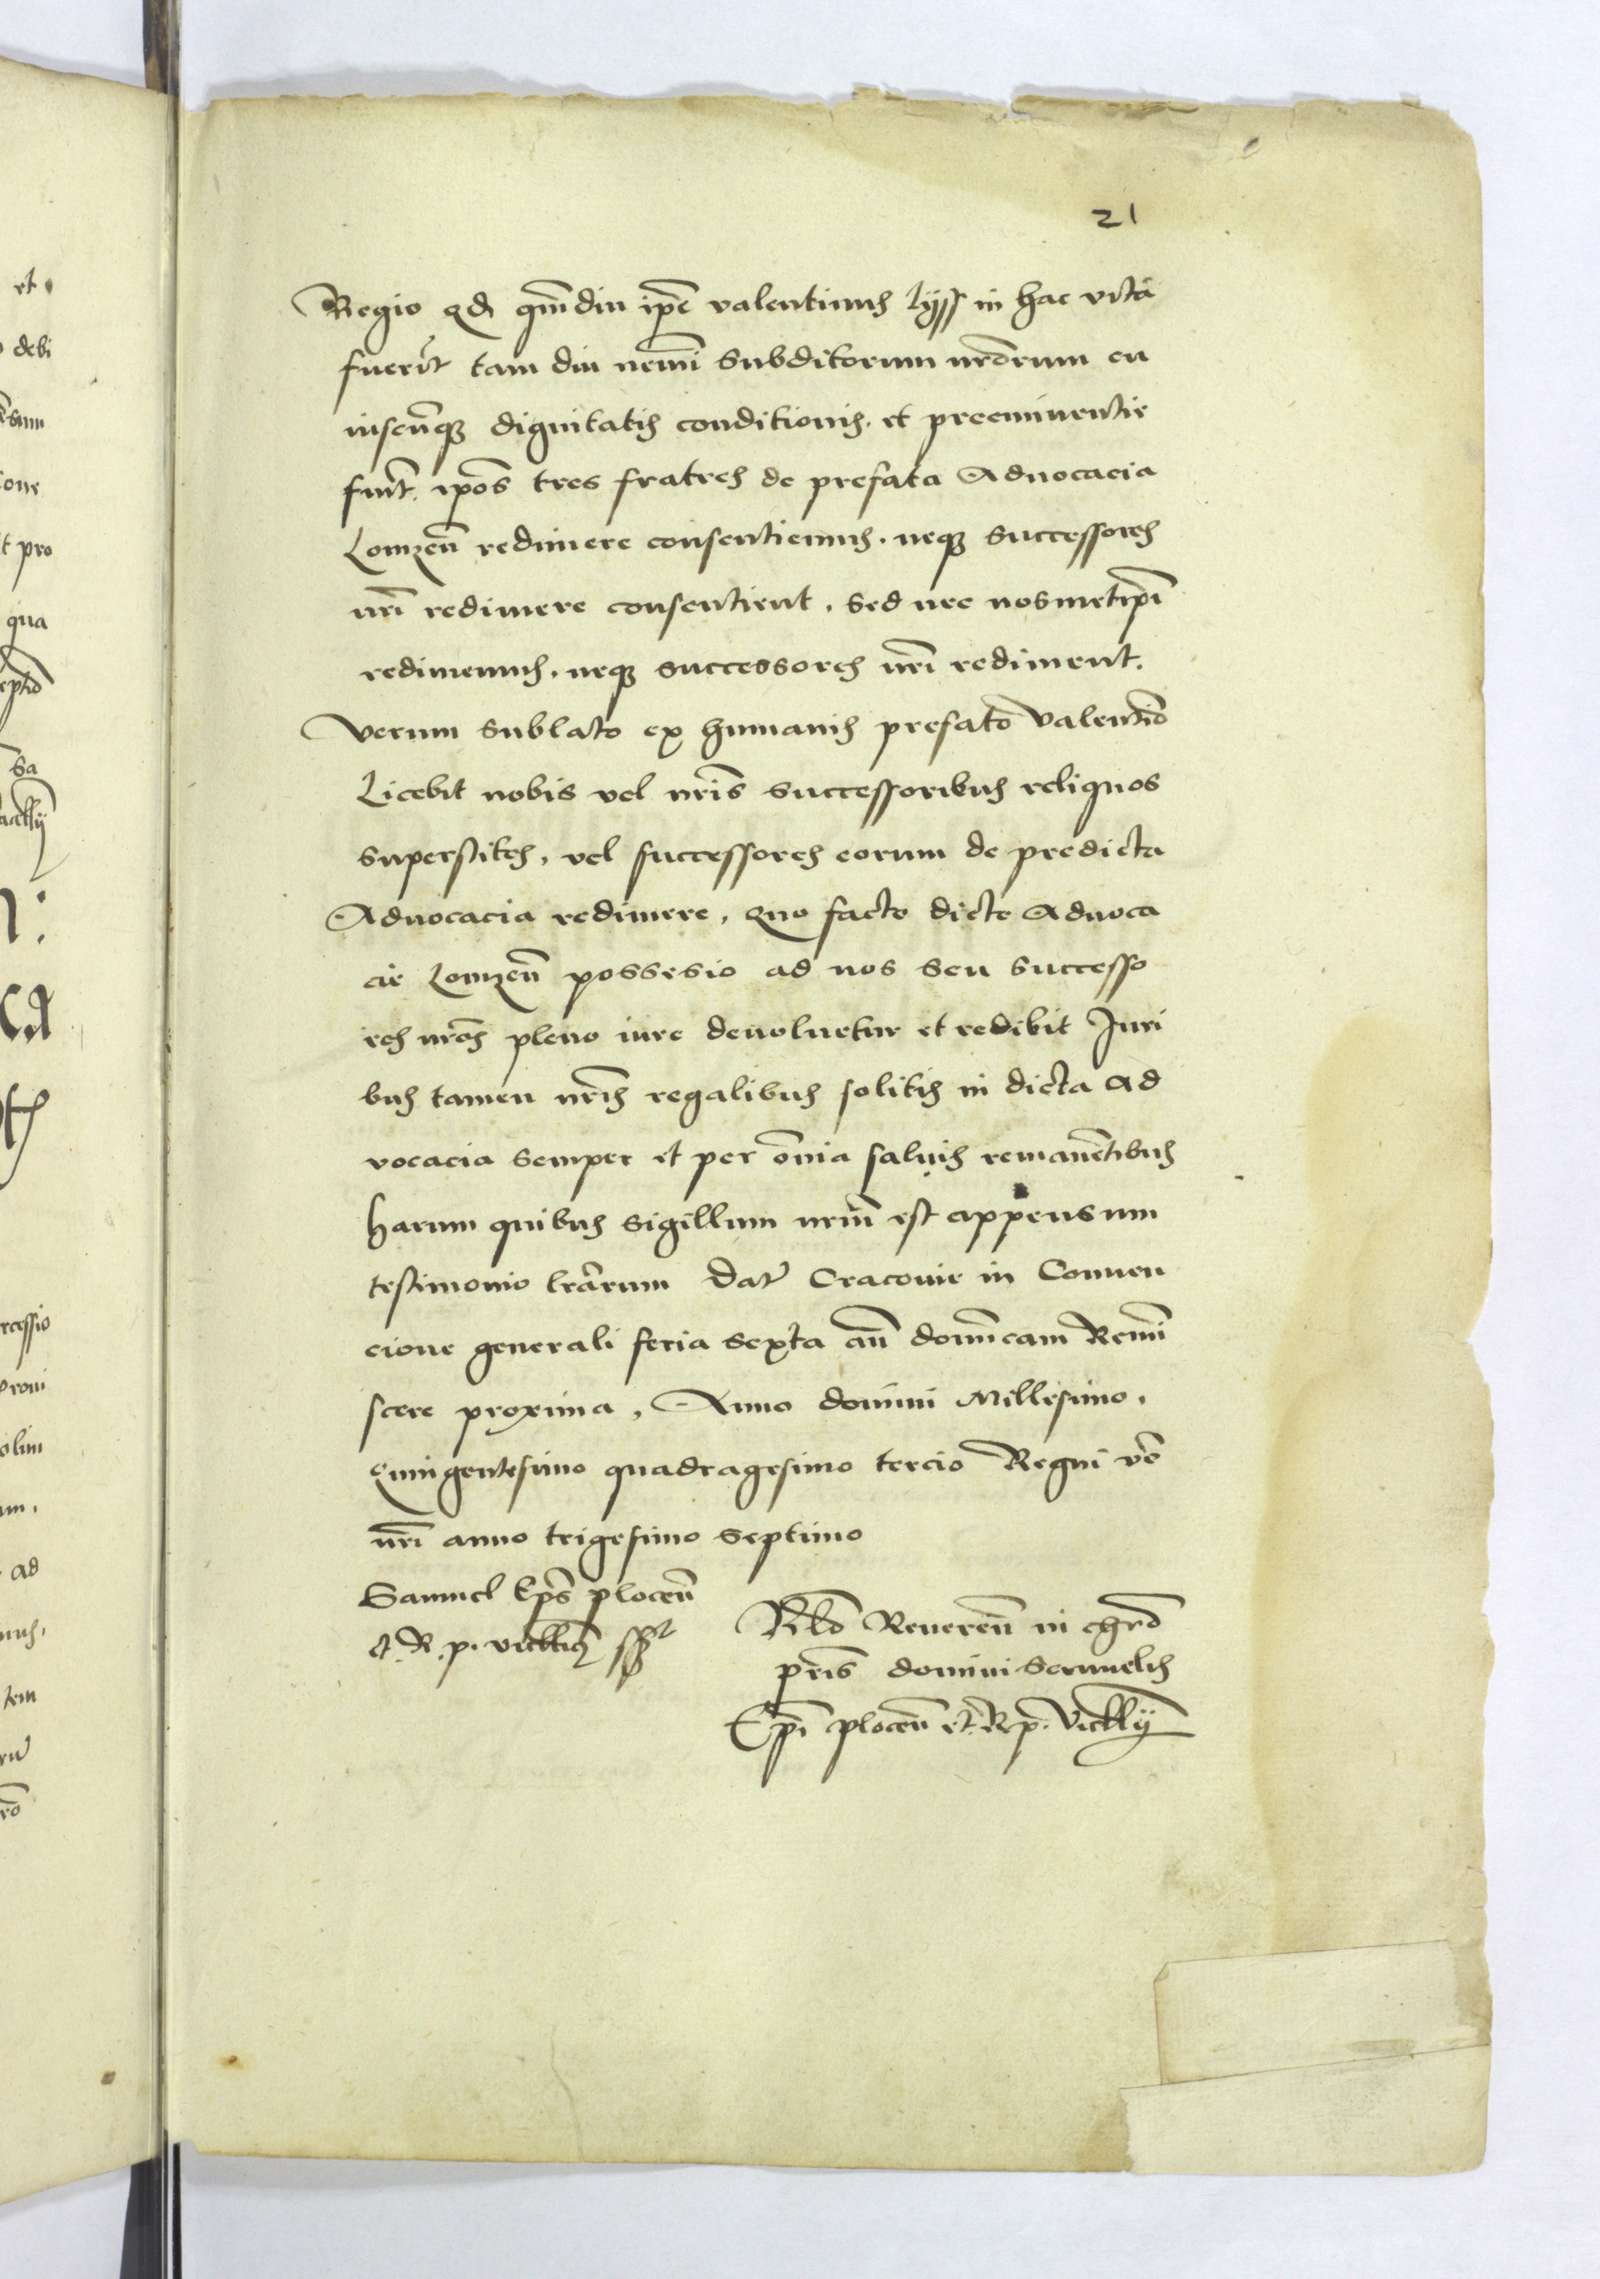 21
Regio qd qm̄diu ip̄e valentinus lÿss in hac vita
fuerit tam diu nemi̅ subditorum nr̄orum cu
iuscu̅q; dignitatis conditionis. et preeminentie
fuit. ip̄os tres fratres de prefata Aduocacia
Lomzen̄ redimere consentiemus. neq; successores
nr̄i redimere consentient. sed nec nosmetip̄i
redimemus. neq; successores nr̄i rediment.
Verum sublato ex humanis prefato Valentino̅
Licebit nobis vel nr̄is successoribus reliquos
superstites, vel successores eorum de predicta
Aduocacia redimere, quo facto dicte Aduoca
cie Lomzen̄ possesio ad nos seu successo
res nr̄os pleno iure deuoluetur et redibit Juri
bus tamen nr̄is regalibus solitis in dicta Ad
vocacia semper et per o̅nia saluis remane̅tibus
harum quibus sigillum nr̄m est appensum
testimonio lr̄arum Dat̄ Cracouie in Conuen
cione generali feria sexta an̄ domi̅cam Remi̅
scere proxima, Anno domini Millesimo.
Quingentesimo quadragesimo tercio Regni v̄o
nr̄i anno trigesimo septimo
Samuel Ep̄s plocen̄
et. R. p. vicecan̄ sst
Rlo̅ Reueren̄ in chr̄o
pr̄is domini Samuelis
Ep̄i plocen̄ et. R p̄. Vicecan̄
et
debi
pro
qua
ad